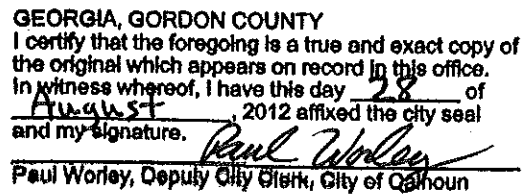 GEORGIA, GORDON COUNTY
I certify that the foregoing is a true and exact copy of
the original which appears on record in this office.
In witness whereof, I have this day 28 of
August, 2012 affixed the city seal
and my signature. Paul Worley
Paul Worley, Deputy City Clerk, City of Calhoun